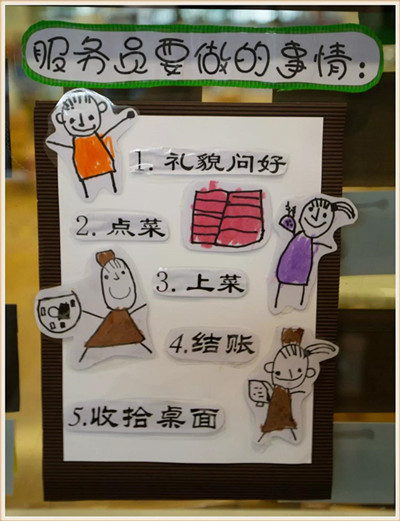 服务员要做的事情:
1.礼貌问好
2.点菜
3.上菜
4.结账
5.收拾桌面